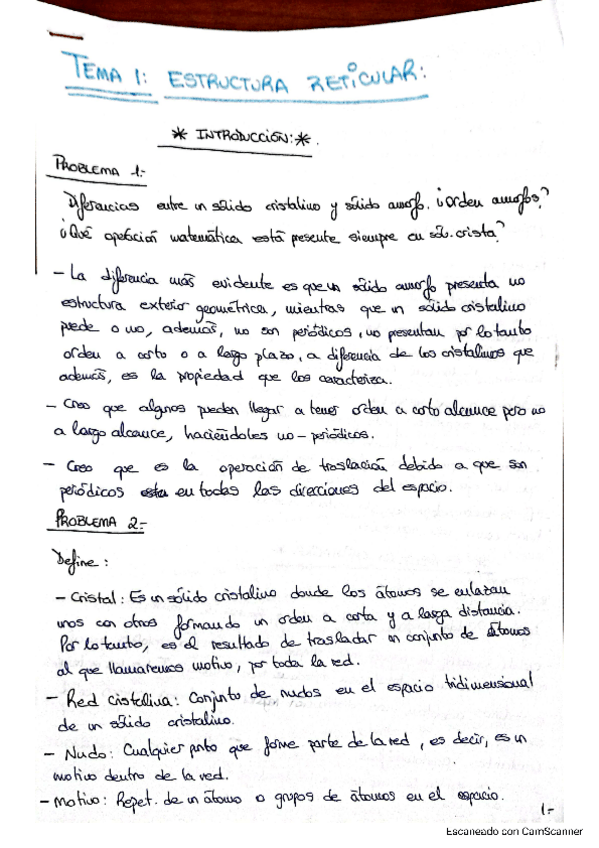 TEMA 1: ESTRUCTURA RETICULAR:
* INTRODUCCIÓN: *.
PROBLEMA 1.-
Diferencias entre un sólido cristalino y sólido amorfo. ¿Orden amorfos?
¿Qué operación matemática está presente siempre en sól. crista?
- La diferencia más evidente es que un sólido amorfo presenta no
estructura exterior geométrica, mientras que un sólido cristalino
puede o no, además, no son periódicos, no presentan por lo tanto
orden a corto o a largo plazo, a diferencia de los cristalinos que
además, es la propiedad que los caracteriza.
- Creo que algunos pueden llegar a tener orden a corto alcance pero no
a largo alcance, haciéndoles no-periódicos.
- Creo que es la operación de traslación debido a que son
periódicos en todas las direcciones del espacio.
PROBLEMA 2.-
Define:
- Cristal: Es un sólido cristalino donde los átomos se enlazan
unos con otros formando un orden a corta y a larga distancia.
Por lo tanto, es el resultado de trasladar un conjunto de átomos
al que llamaremos motivo, por toda la red.
- Red cristalina: Conjunto de nudos en el espacio tridimensional
de un sólido cristalino.
- Nudo: Cualquier punto que forme parte de la red, es decir, es un
motivo dentro de la red.
- Motivo: Repet. de un átomo o grupos de átomos en el espacio.
1.-
Escaneado con CamScanner